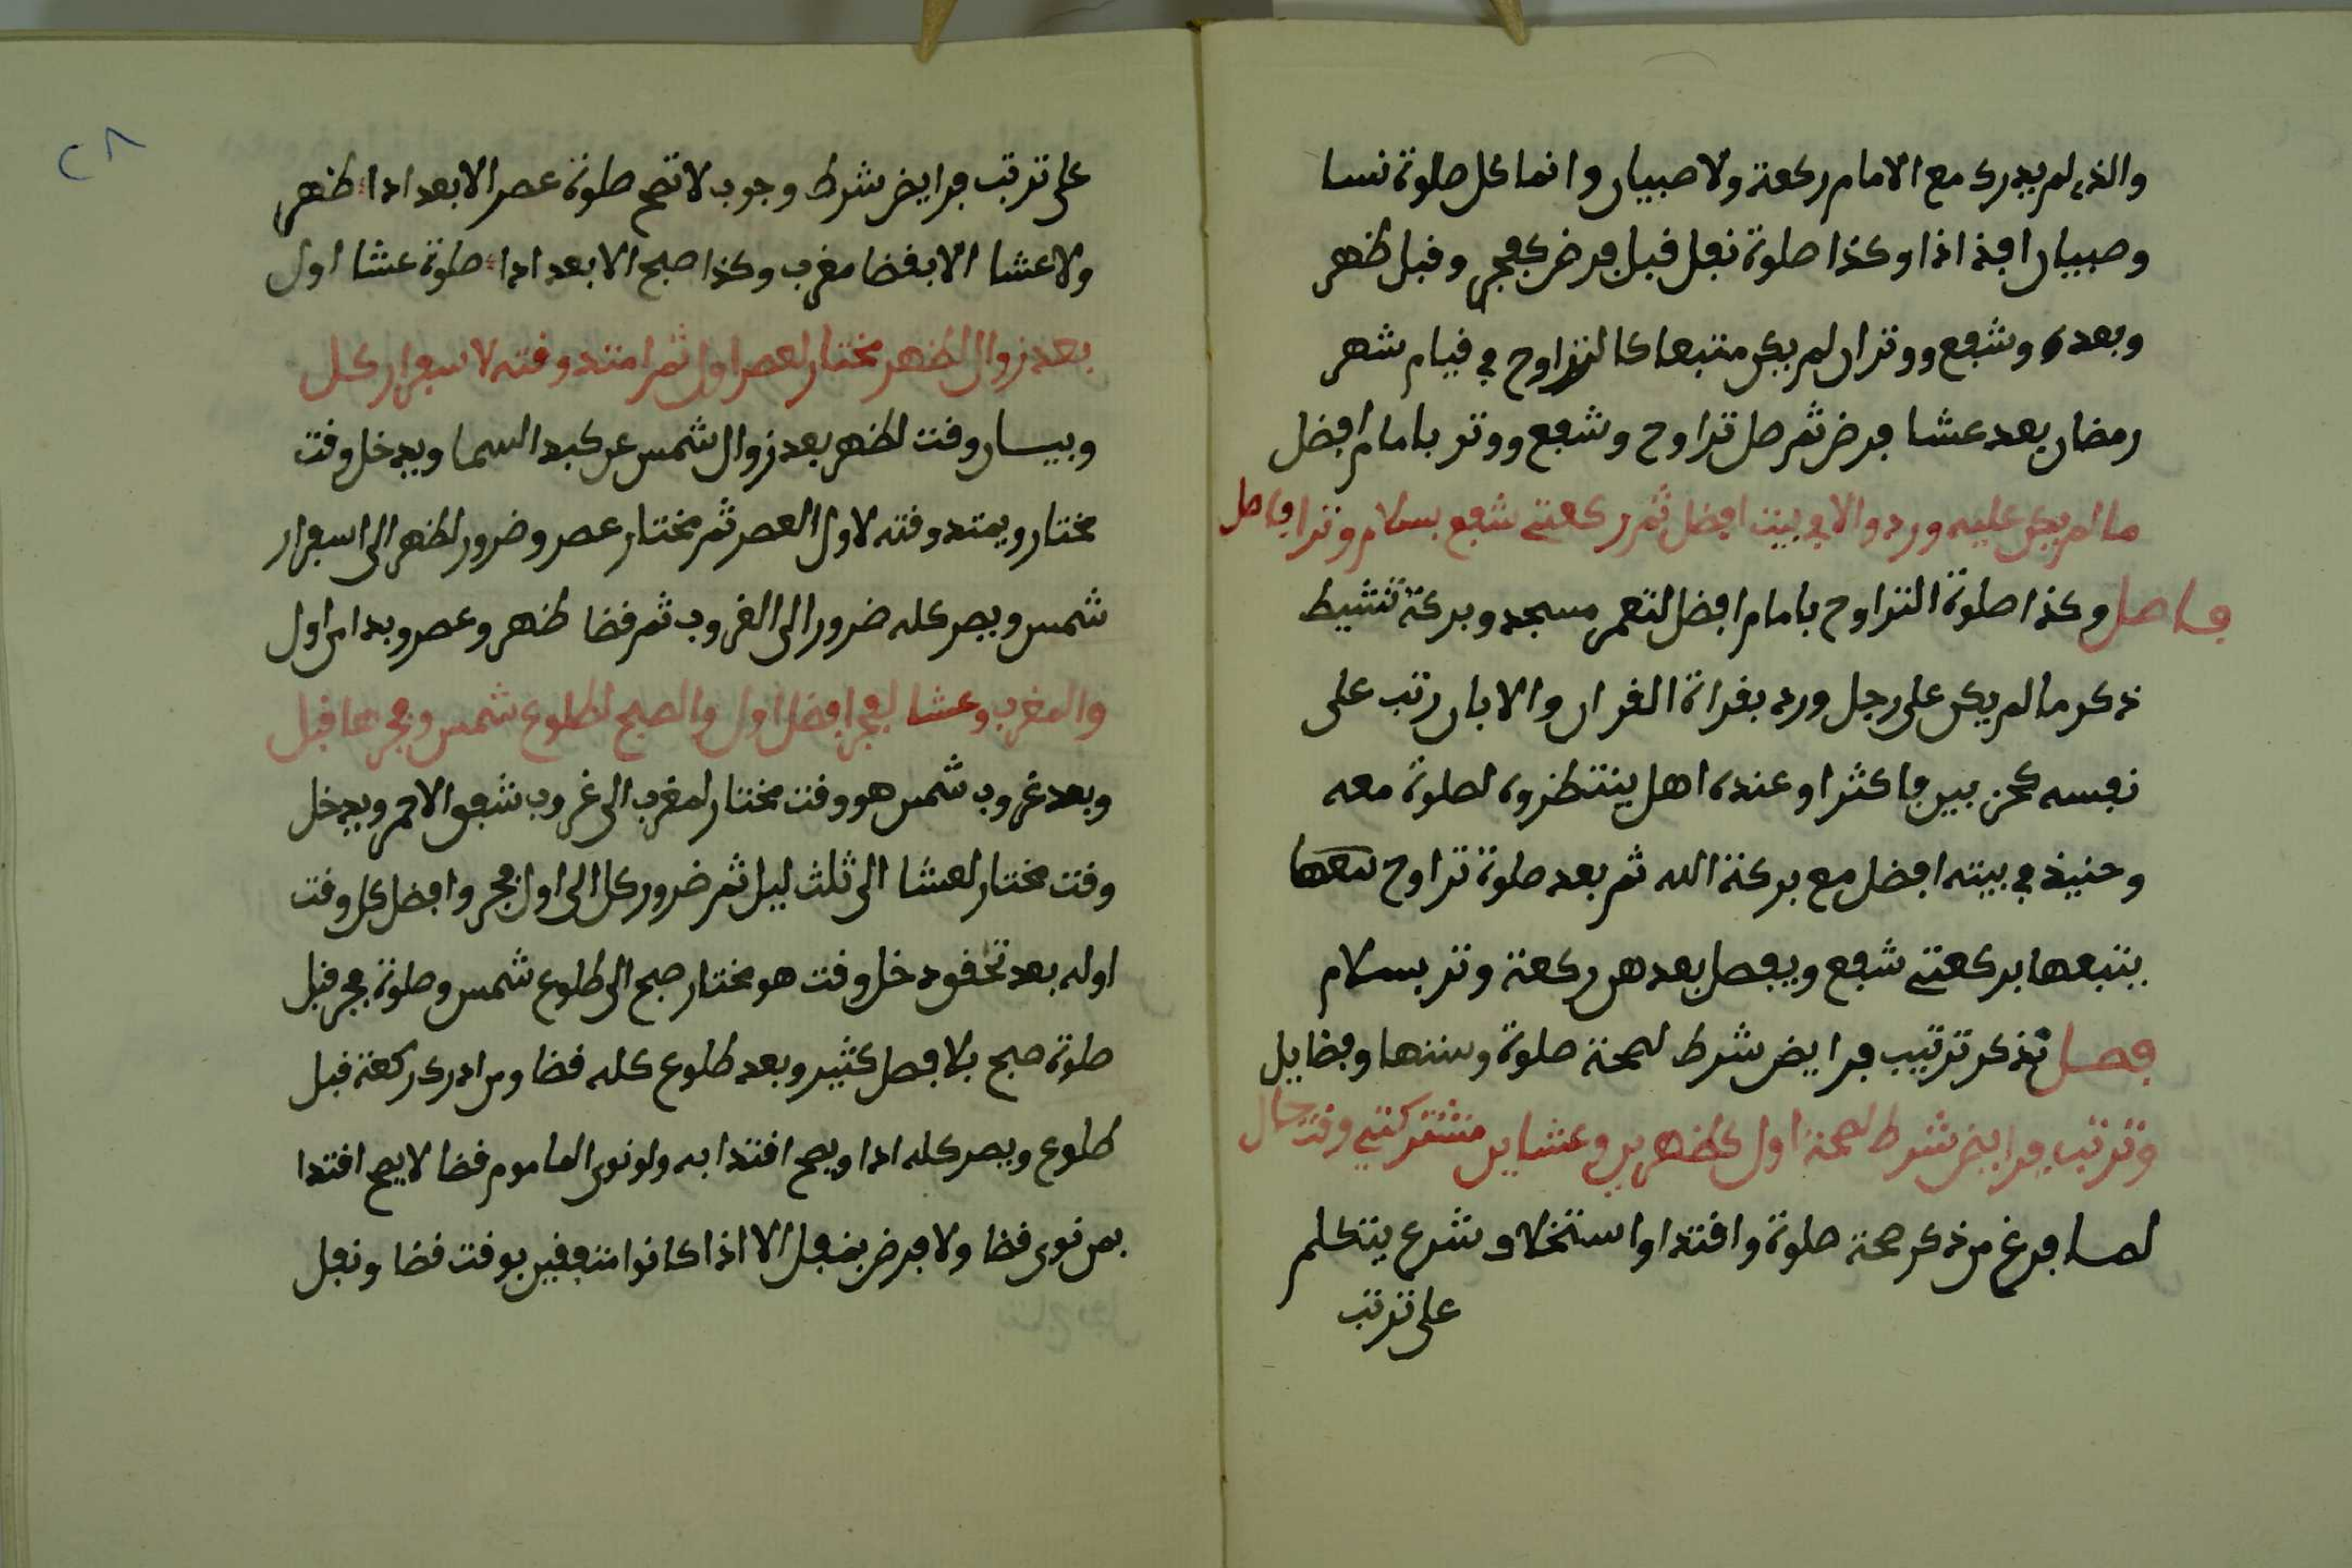 والذي لم يدرك مع الامام ركعة ولا صبيان وانما كل صلوة نسا
وصبيان افذاذا وكذا صلوة نفل قبل فرض كفجر وقبل ظهر
وبعده وشفع ووتر ان لم يكن متبعا كالتراوح في قيام شهر
رمضان بعد عشا فرض ثم صل تراوح وشفع ووتر بامام افضل
ما لم يكن عليه ورد والا في بيت افضل ثم ركعتي شفع بسلام وترا فاصل
فاصل وكذا صلوة التراوح بامام افضل لتعمر مسجد وبركة تنشيط
ذكر ما لم يكن على رجل ورد بقراة القران والا بان رتب على
نفسه كحزبين فاكثر او عنده اهل ينتظروه لصلوة معه
وحنيذ في بيته افضل مع بركة الله ثم بعد صلوة تراوح
يتبعها بركعتي شفع ويفصل بعدهن ركعة وتر بسلام
فصل نذكر ترتيب فرايض شرط لصحة صلوة وسننها وفضايل
وترتب فرايض شرط لصحة اول كظهرين وعشاين مشتركتي وقت حال
لما فرغ من ذكر صحة صلوة واقتدا واستخلاف شرع يتكلم
على ترتب
٢٨
على ترتب فرايض شرط وجوب لا تصح صلوة عصر الا بعد اداء ظهر
ولا عشا الا بقضا مغرب وكذا صبح الا بعد اداء صلوة عشا اول
بعد زوال لظهر مختار لعصر اول ثم امتد وقته لاسفرار كل
وبيان وقت لظهر بعد زوال شمس عن كبد السما ويدخل وقت
مختار ويمتد وقته لاول العصر ثم مختار عصر وضرور لظهر الى اسفرار
شمس ويصر كله ضرور الى الغروب ثم قضا ظهر وعصر وبدا من اول
والمغرب وعشا لفجر افضل اول والصبح لطلوع شمس وفجرها قبل
وبعد غروب شمس هو وقت مختار لمغرب الى غروب شفق الاحمر ويدخل
وقت مختار لعشا الى ثلث ليل ثم ضرور كل الى اول فجر وافضل كل وقت
اوله بعد تحقق دخل وقت هو مختار صبح الى طلوع شمس وصلوة فجر قبل
صلوة صبح بلا فصل كثير وبعد طلوع كله قضا ومن ادرك ركعة قبل
طلوع ويصر كله ادا ويصح اقتدا به ولو نوى الماموم قضا لا يصح اقتدا
بمن نوى قضا ولا فرض بنفل الا اذا كانوا متفقين بوقت قضا ونفل